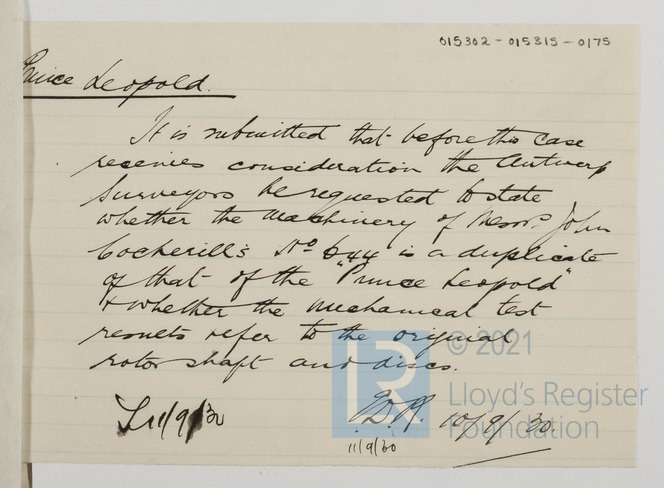 015302-015315-0175
Prince Leopold.
It is submitted that before this case
receives consideration the Antwerp
Surveyors be requested to state
whether the machinery of Messrs. John
Cockerill's No 644 is a duplicate
of that of the "Prince Leopold"
& whether the mechanical test
results refer to the original
rotor shaft and discs.
11/9/30
10/9/30.
11/9/30
LR
© 2021
Lloyd's Register
Foundation